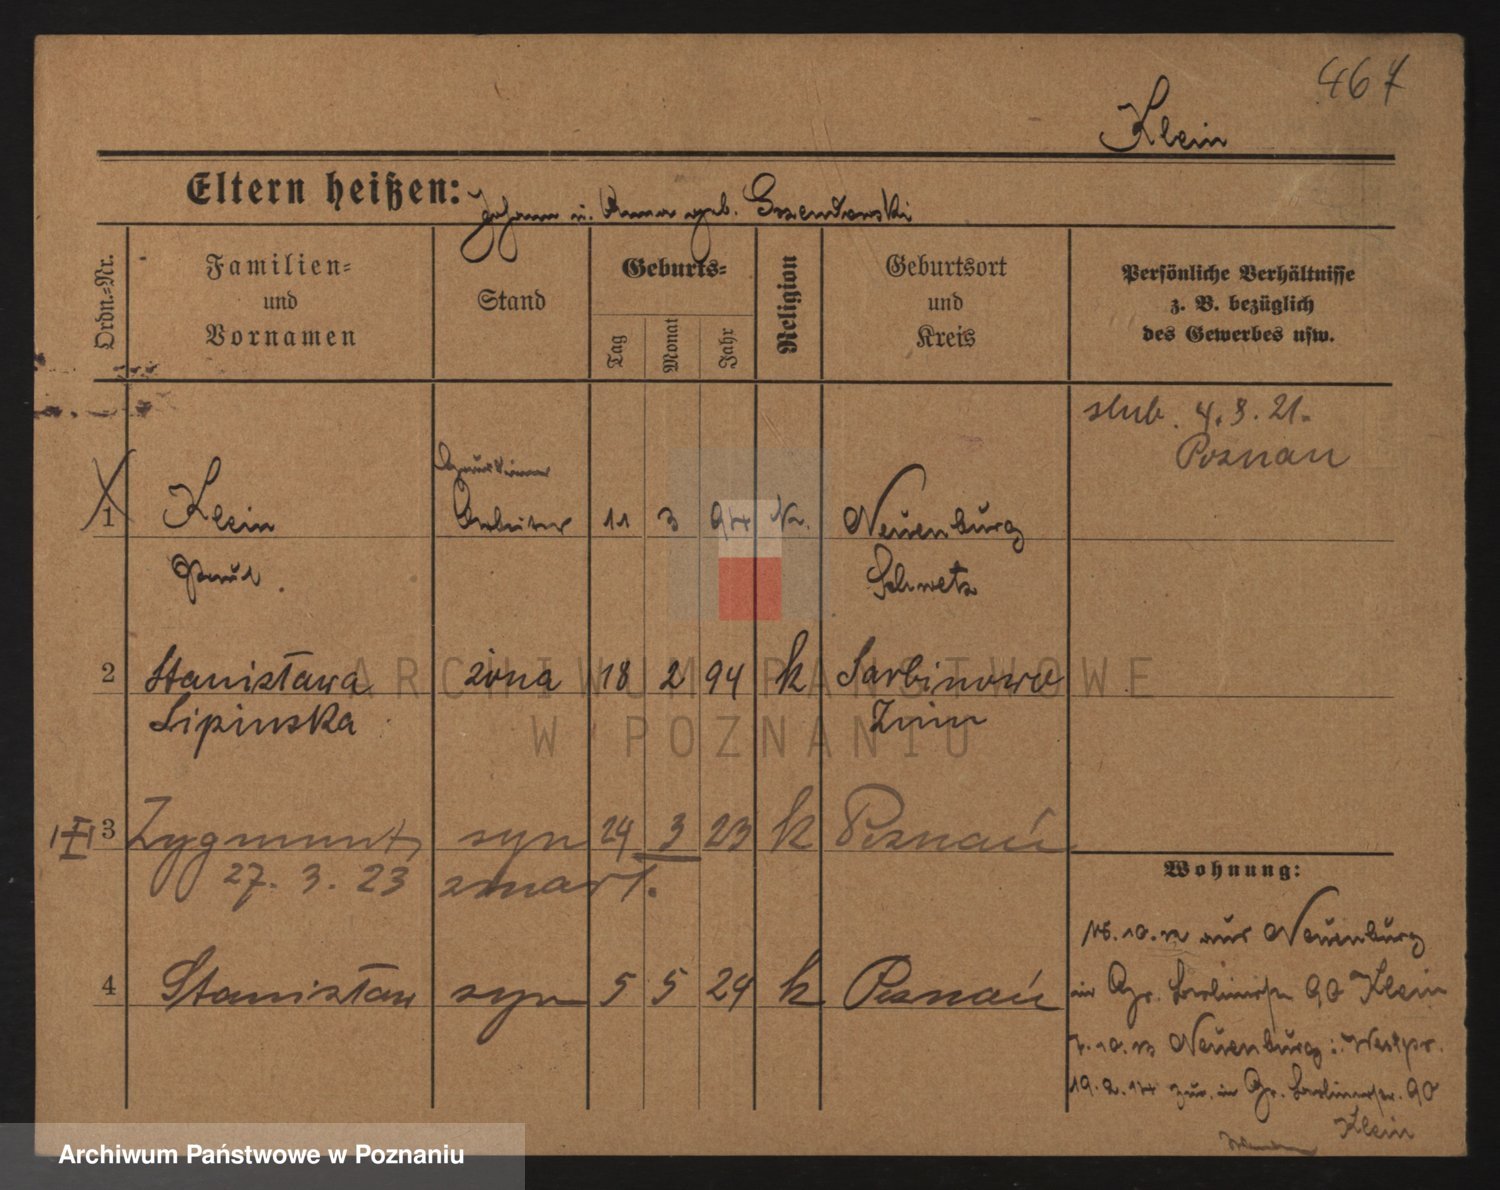 467
Klein
Eltern heißen: Johann u. Anna geb.
Ordn.=Nr.
Familien=
und
Vornamen
Stand
Geburts=
Tag
Monat
Jahr
Religion
Geburtsort
und
Kreis
Persönliche Verhältnisse
z. B. bezüglich
des Gewerbes usw.
slub. 4. 8. 21.
Poznań
1 Klein Arbeiter 11 3 94 k. Neuenburg
Paul Schwetz
2 Stanisława żona 18 2 94 k Sarbinowo
Lipinska Znin
3 Zygmunt syn 24 3 23 k Poznań
27. 3. 23 zmarł.
4 Stanisław syn 5 5 24 k Poznań
Wohnung:
15.10.12 aus Neuenburg
in Gr. Berlinerstr 90 Klein
7.10.13 Neuenburg i. Westpr.
19.2.14 zur. in Gr. Berlinerstr. 90
Klein
ARCHIWUM PAŃSTWOWE
W POZNANIU
Archiwum Państwowe w Poznaniu